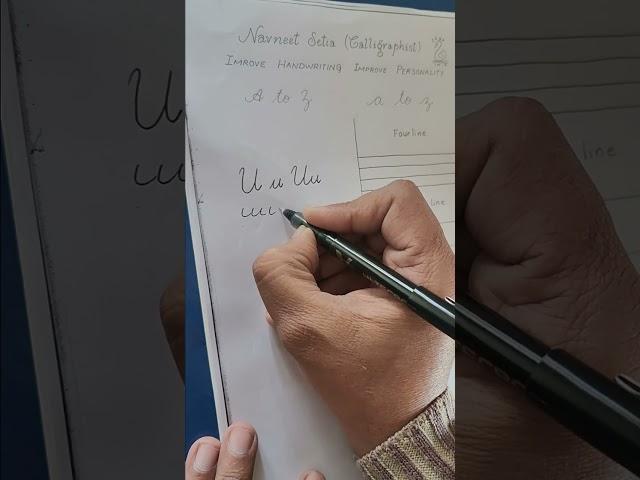 Navneet Setia (Calligraphist)
IMROVE HANDWRITING IMPROVE PERSONALITY
A to Z a to z
Four line
line
U u Uu
uuu